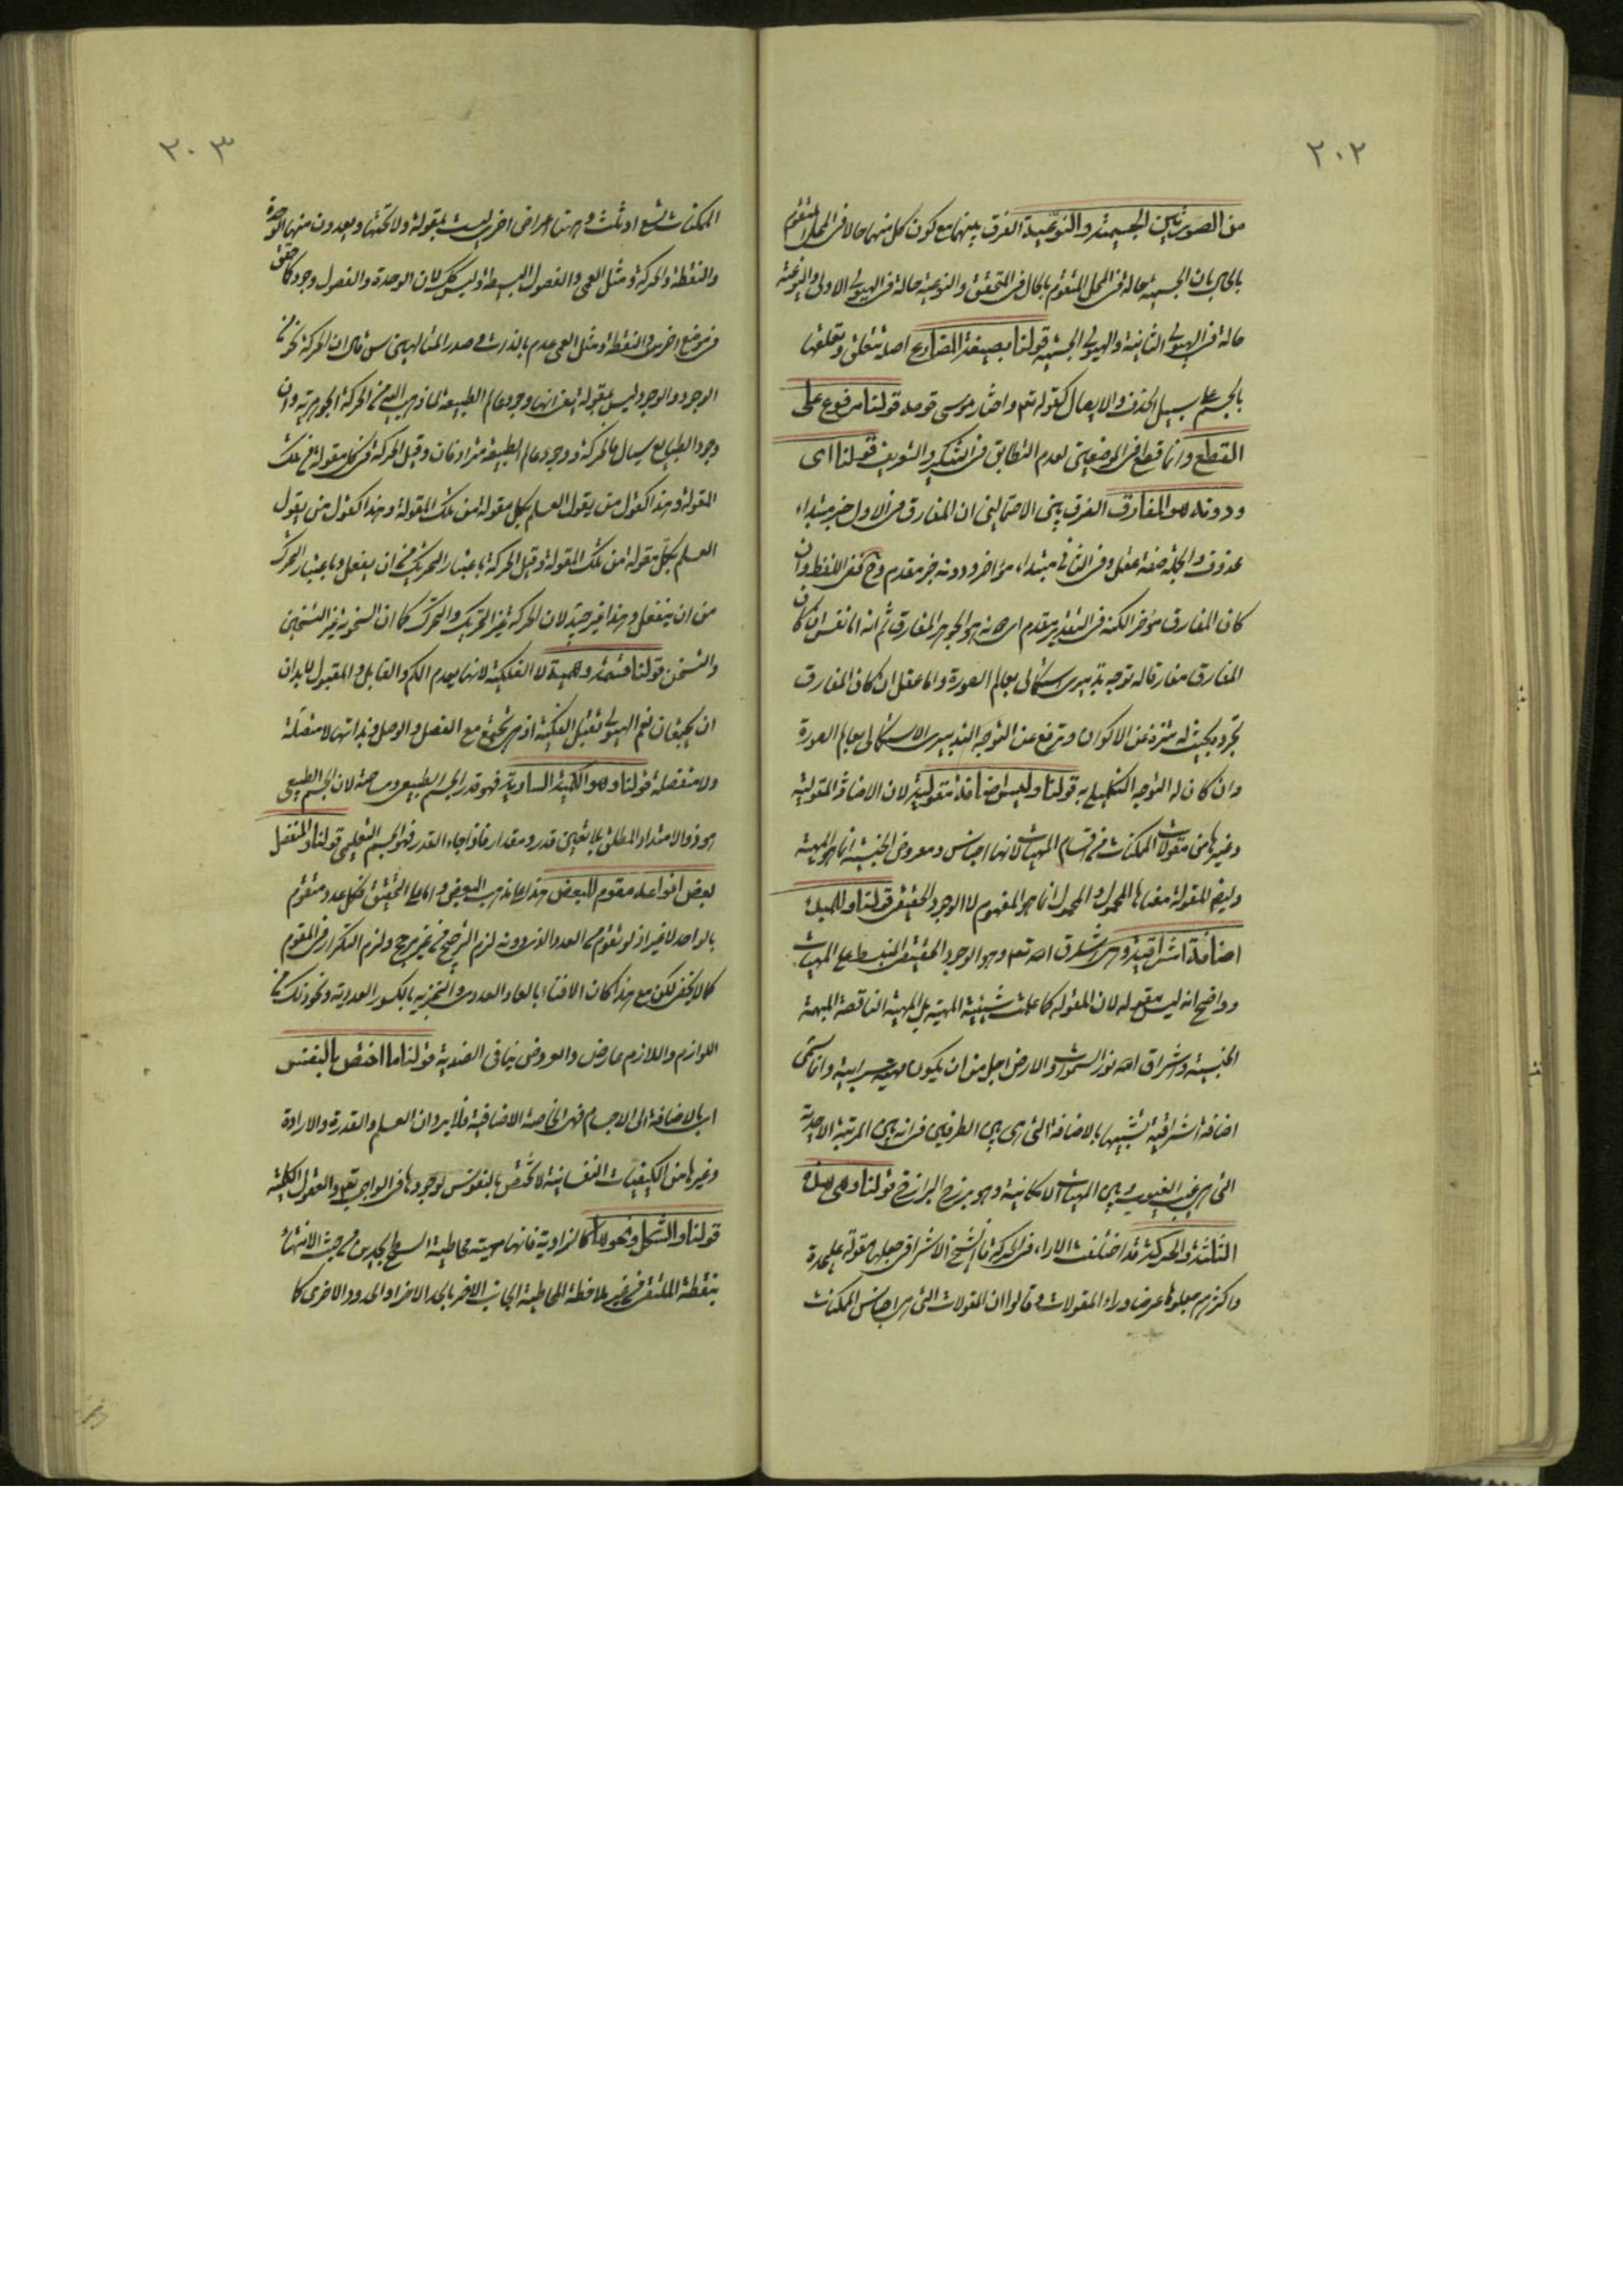 ٢٠٢
من الصورتين الجسمية والنوعية الفرق بينهما مع كون كل منهما حالا فى المحل المتقوم
بالحال بان الجسمية حالة فى المحل المتقوم بالحال فى التحقق والنوعية حالة فى الهيولى الاولى والنوعية
حالة فى الهيولى الثانية والهيولى الجسمية قولنا بصيغة المضارع اصله تتعلق وتعلقها
بالجسم على سبيل الحذف والايصال كقوله تعم واختار موسى قومه قولنا مرفوع على
القطع وانما قطع فى الموضعين لعدم التطابق فى التنكير والتعريف قولنا اى
ودونه هو المفارق الفرق بين الاحتمالين ان المفارق فى الاول خبر مبتداء
محذوف والجملة صفة عقل وفى الثانى مبتداء مؤخر ودونه خبر مقدم وح كنفى اللفظ وان
كان المفارق مؤخرا لكنه فى التقدير مقدم اى هو الجوهر المفارق ثم انه اما نفس ان كان
المفارق مفارقا له توجه تدبيرى استكمالى بعالم الصورة واما عقل ان كان المفارق
تجرد بحيث له تنزه عن الاكوان وترفع عن التوجه التدبيرى الاستكمالى بعالم الصورة
وان كان له التوجه التكميلى به قولنا وليس اضافة مقولية لان الاضافة المقولية
وغيرها من مقولات الممكنات من اقسام المهيات لانها اجناس ومعروض الجنسية انما هو المهية
وايضا المقولة معناها المحمول والمحمول انما هو المفهوم لا الوجود الحقيقى قولنا وللمبدء
اضافة اشراقية وهى اشراق الله تعم وهو الوجود الحقيقى المنبسط على المهيات
وواضح انه ليس مقولة لان المقولة كما علمت شيئية المهية بل المهية الناقصة المبهمة
الجنسية واشراق الله نور السموات والارض اجل من ان يكون مهية سرابية وانما سمى
اضافة اشراقية تشبيها بالاضافة التى هى بين الطرفين فى انه بين المرتبة الاحدية
التى هى غيب الغيوب وبين المهيات الامكانية وهو برزخ البرازخ قولنا وهى هذه
الثلثة والحركة قد اختلفت الاراء فى الحركة فالشيخ الاشراقى جعلها مقولة عليحدة
واكثرهم جعلوها عرضا وراء المقولات وقالوا ان المقولات التى هى اجناس الممكنات
٢٠٣
الممكنات تسع او ثلث وههنا اعراض اخر ليست بمقولة ولا تحتها ويعدون منها الوحدة
والنقطة والحركة ومثل العمى والفصول البسيطة وليس كك لان الوحدة والفصول وجود كما حقق
فى موضع اخر والنقطة ومثل العمى عدم بالذات وصدر المتالهين س قال ان الحركة نحو من
الوجود والوجود ليس بمقولة يعنى انها وجود عالم الطبيعة لما ذهب اليه من الحركة الجوهرية وان
وجود الطبايع سيال فالحركة ووجود عالم الطبيعة مترادفان وقيل الحركة فى كل مقولة من تلك
المقولة وهذا كقول من يقول العلم بكل مقولة من تلك المقولة وهذا كقول من يقول
العلم بكل مقولة من تلك المقولة وقيل الحركة باعتبار التحريك من ان يفعل وباعتبار التحرك
من ان ينفعل وهذا غير جيد لان الحركة غير التحريك والتحرك كما ان السخونة غير التسخين
والتسخن قولنا قسمة وهمية لا الفكية لانها يعدم الكم والقابل والمقبول لابد ان
ان يجتمعان نعم الهيولى تقبل الفكية اذ هى تجتمع مع الفصل والوصل وبذاتها لا متصلة
ولا منفصلة قولنا وهو الكمية السارية فهو قدر الجسم الطبيعى ومساحته لان الجسم الطبيعى
هو ذو الامتداد المطلق بلا تعين قدر ومقدار فاذا جاء القدر فهو الجسم التعليمى قولنا والمنفصل
بعض انواعه مقوم للبعض هذا على مذهب البعض واما على التحقيق فكل عدد متقوم
بالواحد لا غير اذ لو تقوم من العدد الذى دونه لزم الترجيح من غير مرجح ولزم التكرار فى المقوم
كما لا يخفى لكن مع هذا كان الافناء بالعاد العددى والتجزية بالكسور العددية ونحو ذلك من
اللوازم واللازم عارض والعروض ينافى الضدية قولنا ما اختص بالنفس
اى بالاضافة الى الاجسام فهى الخاصة الاضافية فلا يرد ان العلم والقدرة والارادة
وغيرها من الكيفيات النفسانية لا تختص بالنفوس لوجودها فى الواجب تعم والعقول الكلية
قولنا والشكل ونحوه كالزاوية فانها هيئة محاطية السطح بحدين من حيث الانتهاء
بنقطة الملتقى من غير ملاحظة المحاطية الى جانب الاخر بالحد الاخر او الحدود الاخرى كما